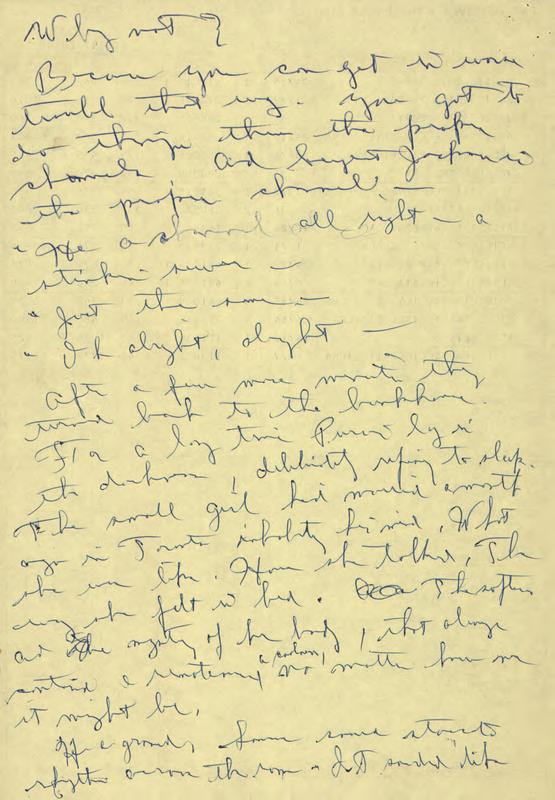 Why not?
Because you can get in worse
trouble that way. You got to
do things thru the proper
channels. And Sergeant Jackson is
the proper channel. —
" He a channel all right — a
stinkin sewer —
" Just the same —
" Ok alright, alright —
After a few more minutes they
turned back to the bunkhouse.
For a long time lay in
the darkness, deliberately refusing to sleep.
The small girl he'd married a month
ago in Toronto his mind. What
she was like. How she talked, The
way she felt in bed. The softness
and the mystery of her body, that always
contained a remoteness, a no matter how
it might be.
He groaned. Some sound
across the room. It sounded like